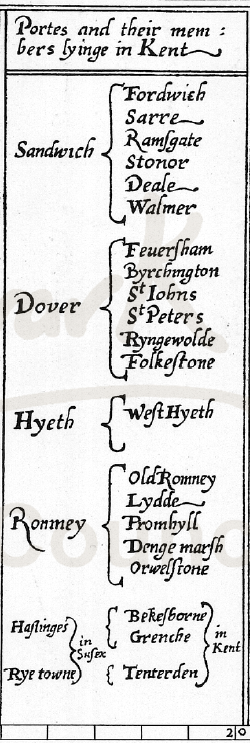 Portes and their mem :
bers lyinge in Kent
Sandwich
Fordwich
Sarre
Ramſgate
Stonor
Deale
Walmer
Dover
Feuerſham
Byrchington
St Iohns
St Peters
Ryngewolde
Folkeſtone
Hyeth
West Hyeth
Romney
Old Romney
Lydde
Promhyll
Denge marſh
Orwelſtone
Haſtinges
Rye towne
in
Suſex
Bekeſborne
Grenche
Tenterden
in
Kent
2|0